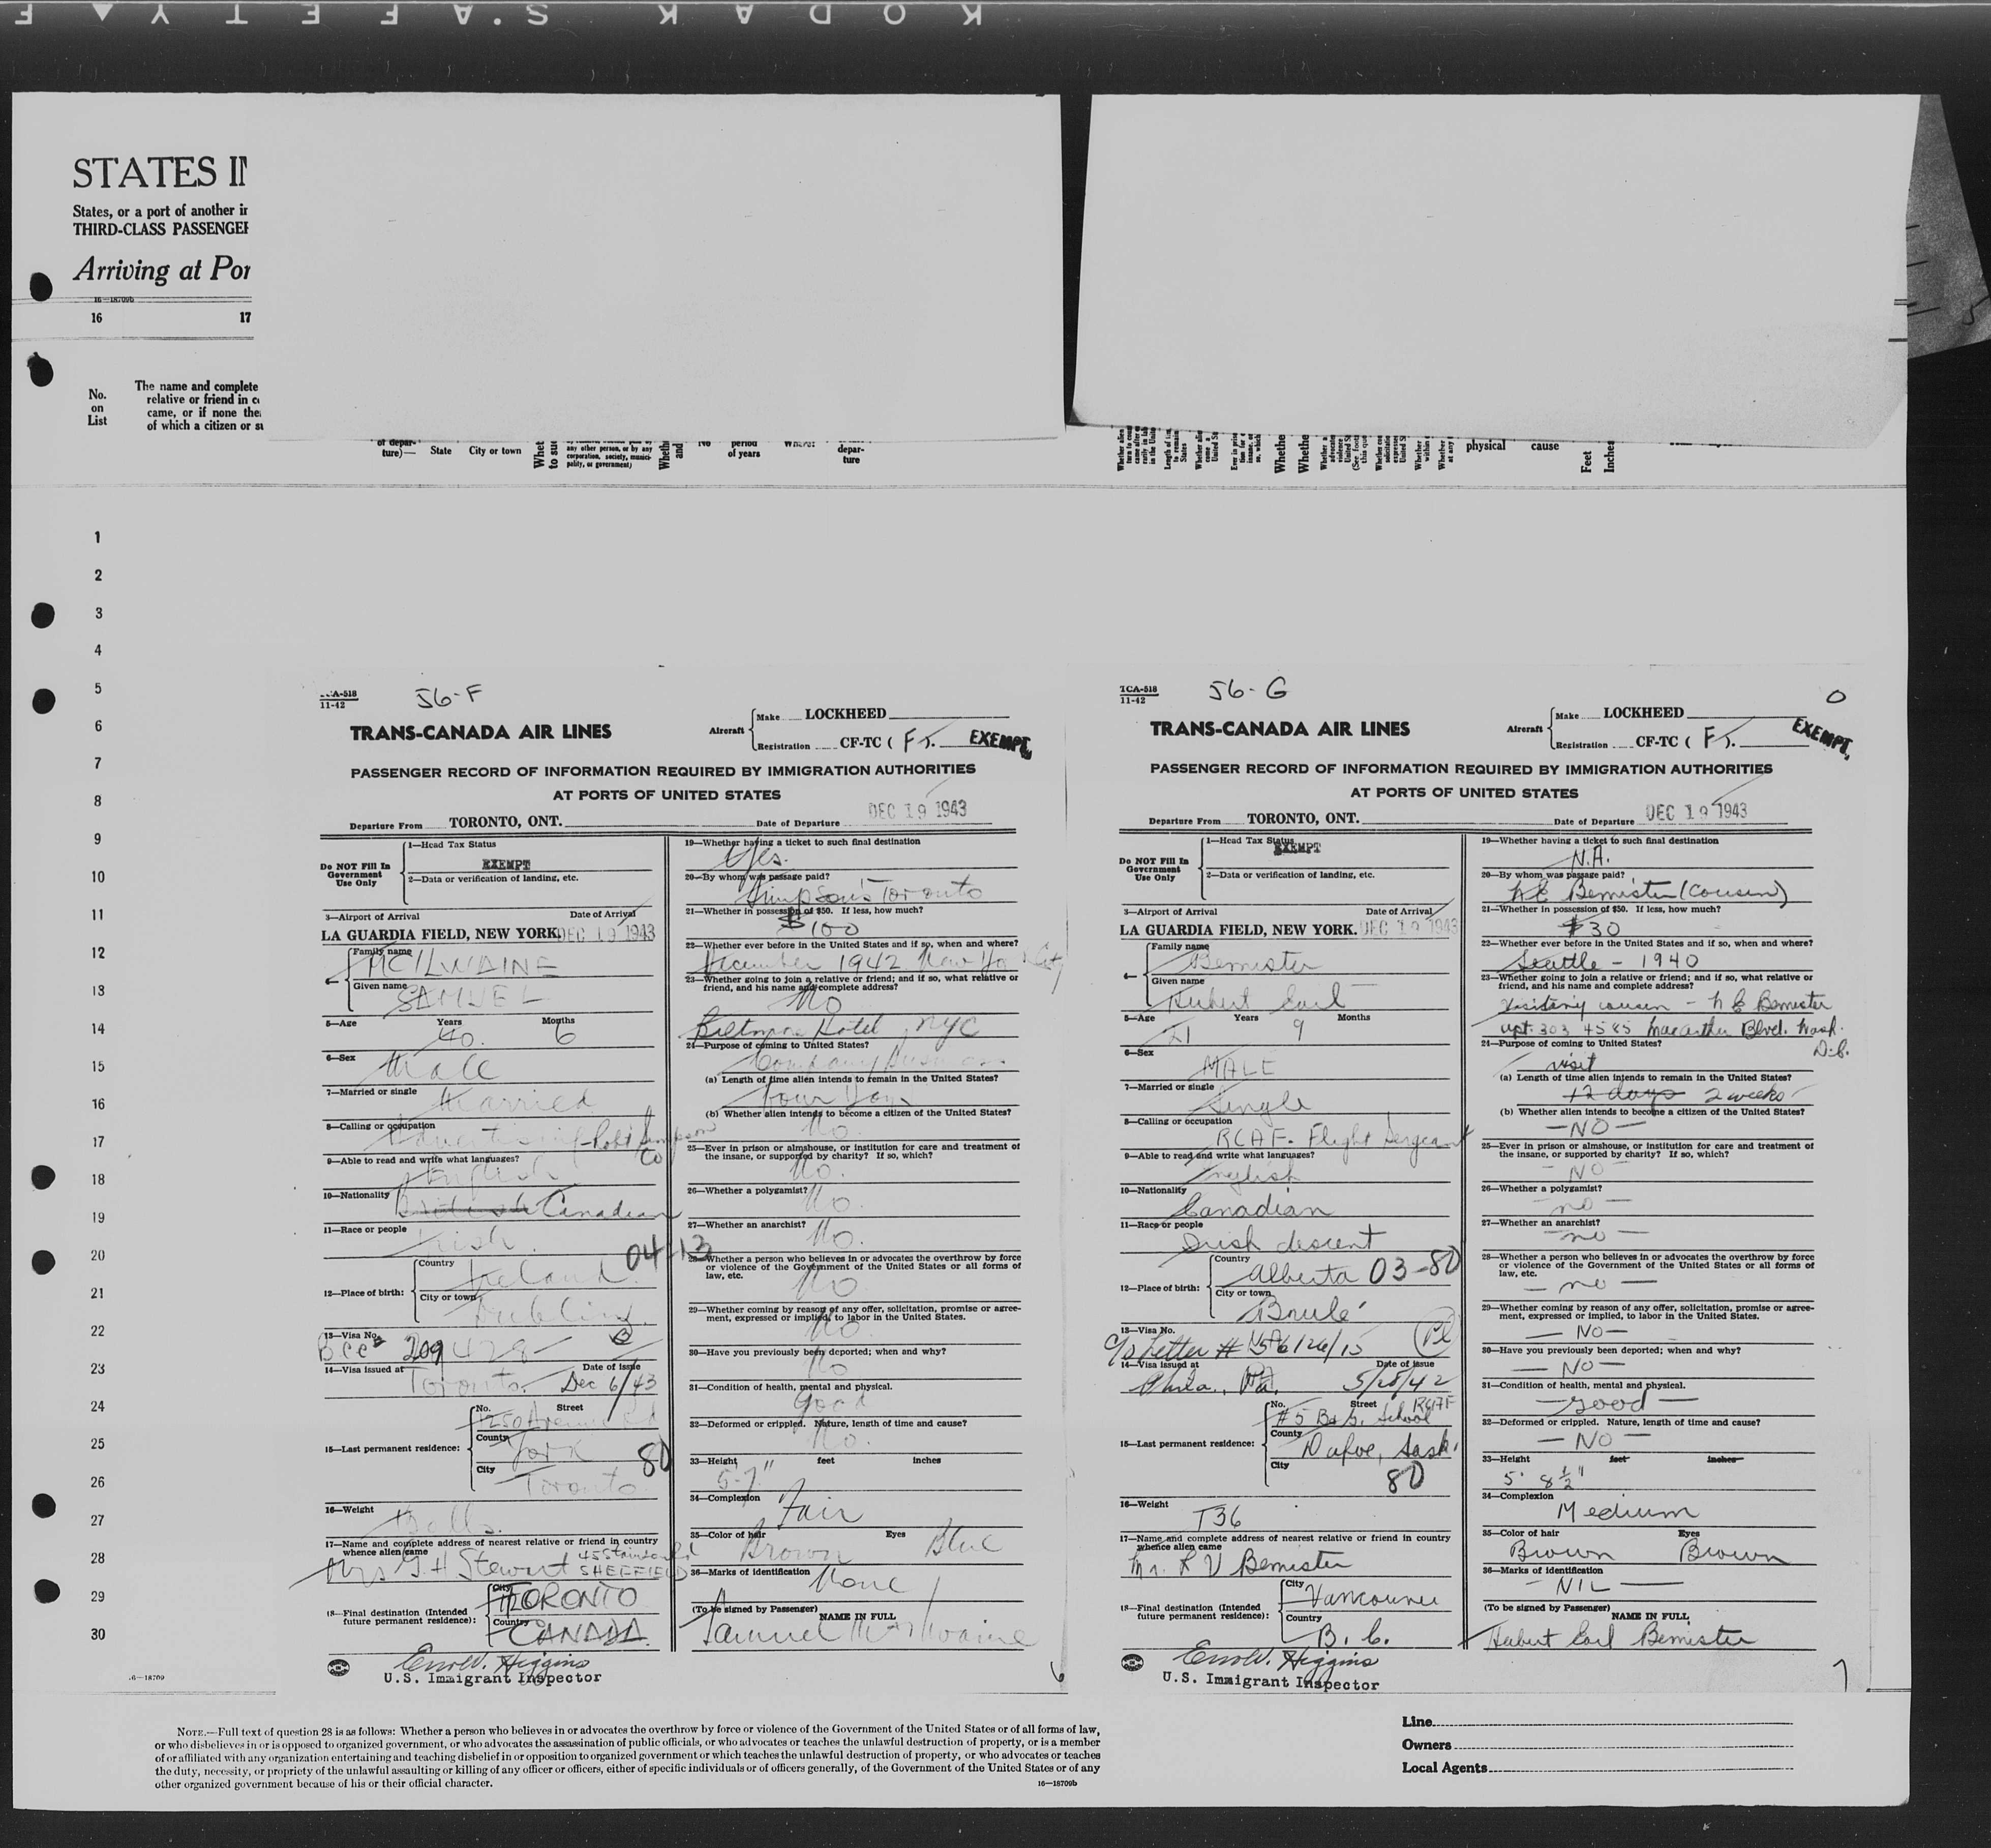 KODAK SAFETY F
STATES IN
States, or a port of another in
THIRD-CLASS PASSENGER
Arriving at Por
16—18709b
16 17
No. on List
The name and complete
relative or friend in c
came, or if none the
of which a citizen or su
of depar-
ture)— State City or town
Whet
to suc
any other person, or by any
corporation, society, munici-
pality, or government)
Whethe
and
No
period
of years
Where?
depar-
ture
physical cause
Feet
Inches
1
2
3
4
5
6
7
8
9
10
11
12
13
14
15
16
17
18
19
20
21
22
23
24
25
26
27
28
29
30
16—18709
TCA-518
11-42
56-F
TRANS-CANADA AIR LINES
Aircraft
Make LOCKHEED
Registration CF-TC ( F ).
EXEMPT
PASSENGER RECORD OF INFORMATION REQUIRED BY IMMIGRATION AUTHORITIES
AT PORTS OF UNITED STATES
Departure From TORONTO, ONT. Date of Departure DEC 19 1943
Do NOT Fill In
Government
Use Only
1—Head Tax Status
EXEMPT
2—Data or verification of landing, etc.
3—Airport of Arrival Date of Arrival
LA GUARDIA FIELD, NEW YORK. DEC 19 1943
4—
Family name
MCILWAINE
Given name
SAMUEL
5—Age Years Months
40. 6
6—Sex
Male
7—Married or single
Married
8—Calling or occupation
Advertising - Robt Simpson
Co
9—Able to read and write what languages?
English
10—Nationality
British Canadian
11—Race or people
Irish
04-13
12—Place of birth:
Country
Ireland
City or town
Dublin
13—Visa No.
BCC 209428
14—Visa issued at Date of issue
Toronto. Dec 6/43
15—Last permanent residence:
No. Street
1250 Avenue Rd
County
York
80
City
Toronto
16—Weight
17—Name and complete address of nearest relative or friend in country
whence alien came
Mrs G. H Stewart
SHEFFIELD
18—Final destination (Intended
future permanent residence):
City
TORONTO
Country
CANADA
Higgins
U.S. Immigrant Inspector
19—Whether having a ticket to such final destination
Yes.
20—By whom was passage paid?
Simpson's Toronto
21—Whether in possession of $50. If less, how much?
$100
22—Whether ever before in the United States and if so, when and where?
December 1942 New York City
23—Whether going to join a relative or friend; and if so, what relative or
friend, and his name and complete address?
No
Biltmore Hotel, NYC
24—Purpose of coming to United States?
Company Business
(a) Length of time alien intends to remain in the United States?
Four Days
(b) Whether alien intends to become a citizen of the United States?
No.
25—Ever in prison or almshouse, or institution for care and treatment of
the insane, or supported by charity? If so, which?
No.
26—Whether a polygamist?
No.
27—Whether an anarchist?
No.
28—Whether a person who believes in or advocates the overthrow by force
or violence of the Government of the United States or all forms of
law, etc.
No
29—Whether coming by reason of any offer, solicitation, promise or agree-
ment, expressed or implied, to labor in the United States.
No
30—Have you previously been deported; when and why?
No
31—Condition of health, mental and physical.
Good
32—Deformed or crippled. Nature, length of time and cause?
No.
33—Height feet inches
5-7"
34—Complexion
Fair
35—Color of hair Eyes
Brown Blue
36—Marks of identification
None
(To be signed by Passenger)
NAME IN FULL
Samuel McIlwaine
6
TCA-518
11-42
56-G
0
TRANS-CANADA AIR LINES
Aircraft
Make LOCKHEED
Registration CF-TC ( F ).
EXEMPT
PASSENGER RECORD OF INFORMATION REQUIRED BY IMMIGRATION AUTHORITIES
AT PORTS OF UNITED STATES
Departure From TORONTO, ONT. Date of Departure DEC 19 1943
Do NOT Fill In
Government
Use Only
1—Head Tax Status
EXEMPT
2—Data or verification of landing, etc.
3—Airport of Arrival Date of Arrival
LA GUARDIA FIELD, NEW YORK. DEC 19 1943
4—
Family name
Bemister
Given name
Hubert Earl
5—Age Years Months
21 9
6—Sex
MALE
7—Married or single
Single
8—Calling or occupation
RCAF. Flight Sergeant
9—Able to read and write what languages?
English
10—Nationality
Canadian
11—Race or people
Irish descent
12—Place of birth:
Country
Alberta 03-80
City or town
Brulé
13—Visa No.
C/o Letter # 56126/15
14—Visa issued at Date of issue
Phila., Pa. 5/28/42
15—Last permanent residence:
No. Street
#5 B&G. School RCAF
County
Dafoe, Sask.
City
80
16—Weight
136
17—Name and complete address of nearest relative or friend in country
whence alien came
Mr. R V Bemister
18—Final destination (Intended
future permanent residence):
City
Vancouver
Country
B. C.
Higgins
U.S. Immigrant Inspector
19—Whether having a ticket to such final destination
N.A.
20—By whom was passage paid?
Bemister (Cousin)
21—Whether in possession of $50. If less, how much?
$30
22—Whether ever before in the United States and if so, when and where?
Seattle - 1940
23—Whether going to join a relative or friend; and if so, what relative or
friend, and his name and complete address?
Visiting cousin - Bemister
apt. 303 4585 Macarthur Blvd. Wash.
D.C.
24—Purpose of coming to United States?
visit
(a) Length of time alien intends to remain in the United States?
12 days 2 weeks
(b) Whether alien intends to become a citizen of the United States?
—NO—
25—Ever in prison or almshouse, or institution for care and treatment of
the insane, or supported by charity? If so, which?
—NO—
26—Whether a polygamist?
—no—
27—Whether an anarchist?
—no—
28—Whether a person who believes in or advocates the overthrow by force
or violence of the Government of the United States or all forms of
law, etc.
—no—
29—Whether coming by reason of any offer, solicitation, promise or agree-
ment, expressed or implied, to labor in the United States.
—NO—
30—Have you previously been deported; when and why?
—NO—
31—Condition of health, mental and physical.
—good—
32—Deformed or crippled. Nature, length of time and cause?
—NO—
33—Height feet inches
5' 8½"
34—Complexion
Medium
35—Color of hair Eyes
Brown Brown
36—Marks of identification
- NIL —
(To be signed by Passenger)
NAME IN FULL
Hubert Earl Bemister
7
NOTE.—Full text of question 28 is as follows: Whether a person who believes in or advocates the overthrow by force or violence of the Government of the United States or of all forms of law,
or who disbelieves in or is opposed to organized government, or who advocates the assassination of public officials, or who advocates or teaches the unlawful destruction of property, or is a member
of or affiliated with any organization entertaining and teaching disbelief in or opposition to organized government or which teaches the unlawful destruction of property, or who advocates or teaches
the duty, necessity, or propriety of the unlawful assaulting or killing of any officer or officers, either of specific individuals or of officers generally, of the Government of the United States or of any
other organized government because of his or their official character.
16—18709b
Line
Owners
Local Agents